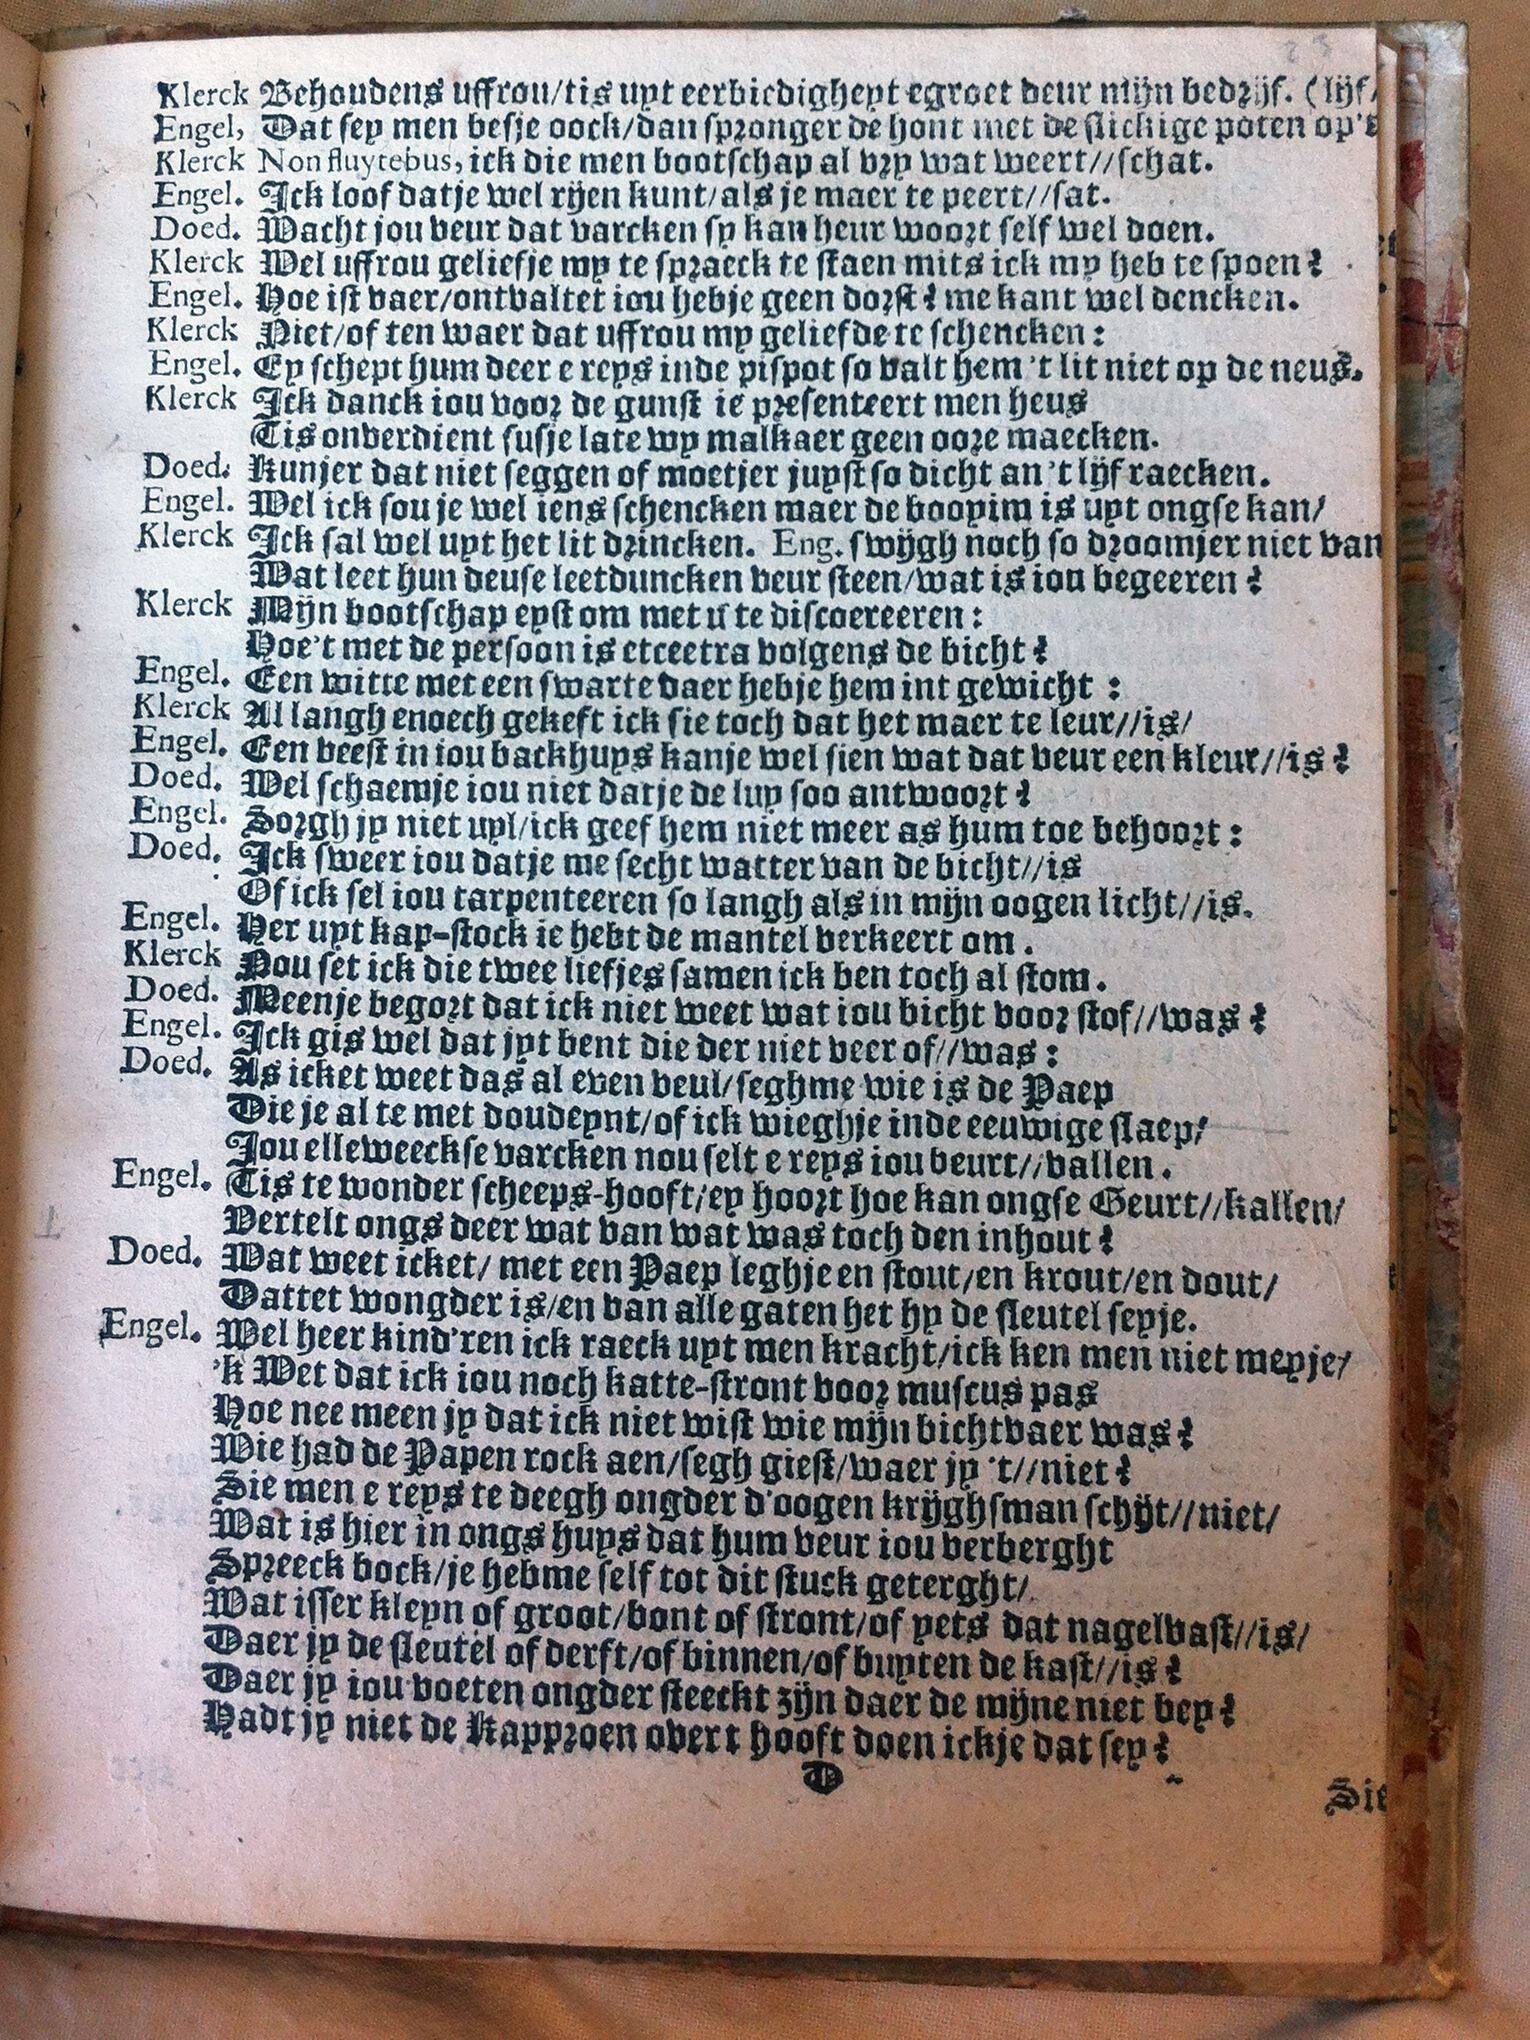 23
Klerck Behoudens uffrou/tis uyt eerbiedigheyt egroet deur mijn bedrijf. (lijf/
Engel, Dat sey men besje oock/dan spronger de hont met de slickige poten op't
Klerck Non fluytebus, ick die men bootschap al vry wat weert//schat.
Engel. Ick loof datje wel rijen kunt/als je maer te peert//sat.
Doed. Wacht jou veur dat varcken sy kan heur woort self wel doen.
Klerck Wel uffrou geliefje my te spraeck te staen mits ick my heb te spoen?
Engel. Hoe ist vaer/ontvaltet iou hebje geen dorst? me kant wel dencken.
Klerck Niet/of ten waer dat uffrou my geliefde te schencken:
Engel. Ey schept hum deer e reys inde pispot so valt hem 't lit niet op de neus.
Klerck Ick danck iou voor de gunst ie presenteert men heus
Tis onverdient susje late wy malkaer geen oore maecken.
Doed. Kunjer dat niet seggen of moetjer juyst so dicht an 't lijf raecken.
Engel. Wel ick sou je wel iens schencken maer de booyim is uyt ongse kan/
Klerck Ick sal wel uyt het lit drincken. Eng. swijgh noch so droomjer niet van
Wat leet hun deuse leetduncken veur steen/wat is iou begeeren?
Klerck Mijn bootschap eyst om met u te discoereeren:
Hoe't met de persoon is etceetra volgens de bicht?
Engel. Een witte met een swarte daer hebje hem int gewicht :
Klerck Al langh enoech gekeft ick sie toch dat het maer te leur//is/
Engel. Een veest in iou backhuys kanje wel sien wat dat veur een kleur//is?
Doed. Wel schaemje iou niet datje de luy soo antwoort?
Engel. Sorgh jy niet uyl/ick geef hem niet meer as hum toe behoort:
Doed. Ick sweer iou datje me secht watter van de bicht//is
Of ick sel iou tarpenteeren so langh als in mijn oogen licht//is.
Engel. Her uyt kap-stock ie hebt de mantel verkeert om.
Klerck Nou set ick die twee liefjes samen ick ben toch al stom.
Doed. Meenje begort dat ick niet weet wat iou bicht voor stof//was?
Engel. Ick gis wel dat jyt bent die der niet veer of//was:
Doed. As icket weet das al even veul/seghme wie is de Paep
Die je al te met doudeynt/of ick wieghje inde eeuwige slaep/
Jou elleweeckse varcken nou selt e reys iou beurt//vallen.
Engel. Tis te wonder scheeps-hooft/ey hoort hoe kan ongse Geurt//kallen/
Vertelt ongs deer wat van wat was toch den inhout?
Doed. Wat weet icket/ met een Paep leghje en stout/en krout/en dout/
Dattet wongder is/en van alle gaten het hy de sleutel seyje.
Engel. Wel heer kind'ren ick raeck uyt men kracht/ick ken men niet meyje/
'k Wet dat ick iou noch katte-stront voor muscus pas
Hoe nee meen jy dat ick niet wist wie mijn bichtvaer was?
Wie had de Papen rock aen/segh giest/waer jy 't//niet?
Sie men e reys te deegh ongder d'oogen krijghsman schijt//niet/
Wat is hier in ongs huys dat hum veur iou verberght
Spreeck bock/je hebme self tot dit stuck geterght/
Wat isser kleyn of groot/bont of stront/of yets dat nagelvast//is/
Daer jy de sleutel of derft/of binnen/of buyten de kast//is?
Daer jy iou voeten ongder steeckt zijn daer de mijne niet bey?
Hadt jy niet de Kapproen overt hooft doen ickje dat sey?
D
Sie